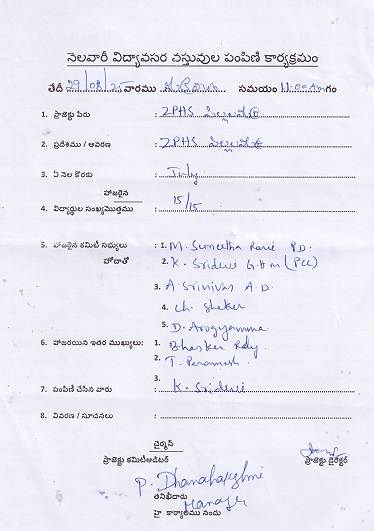 నెలవారీ విద్యావసర వస్తువుల పంపిణి కార్యక్రమం
తేదీ 29/08/25 వారము శుక్రవారం సమయం 11:00 Am గం
1. ప్రాజెక్టు పేరు : ZPHS
2. ప్రదేశము / ఆవరణ : ZPHS
3. ఏ నెల కొరకు : July
హాజరైన
4. విద్యార్థుల సంఖ్యమొత్తము : 15/15
5. హాజరైన కమిటి సభ్యులు : 1. M. Suneetha Rani P.D.
హోదాతో 2. K. Sridevi G.H.M (PCC)
3. A. Srinivas A.D.
4. Ch. Sheker
5. D. Arogyamma
6. హాజరయిన ఇతర ముఖ్యులు: 1. Bhasker Rdy.
2. T. Paramesh
3.
7. పంపిణి చేసిన వారు : K. Sridevi
8. వివరణ / సూచనలు :
ఛైర్మన్
ప్రాజెక్టు కమిటిఆడిటర్ ప్రాజెక్టు డైరెక్టర్
P. Dhanalakshmi
తనిఖీదారు
Manager
హై కార్యాలయము నందు